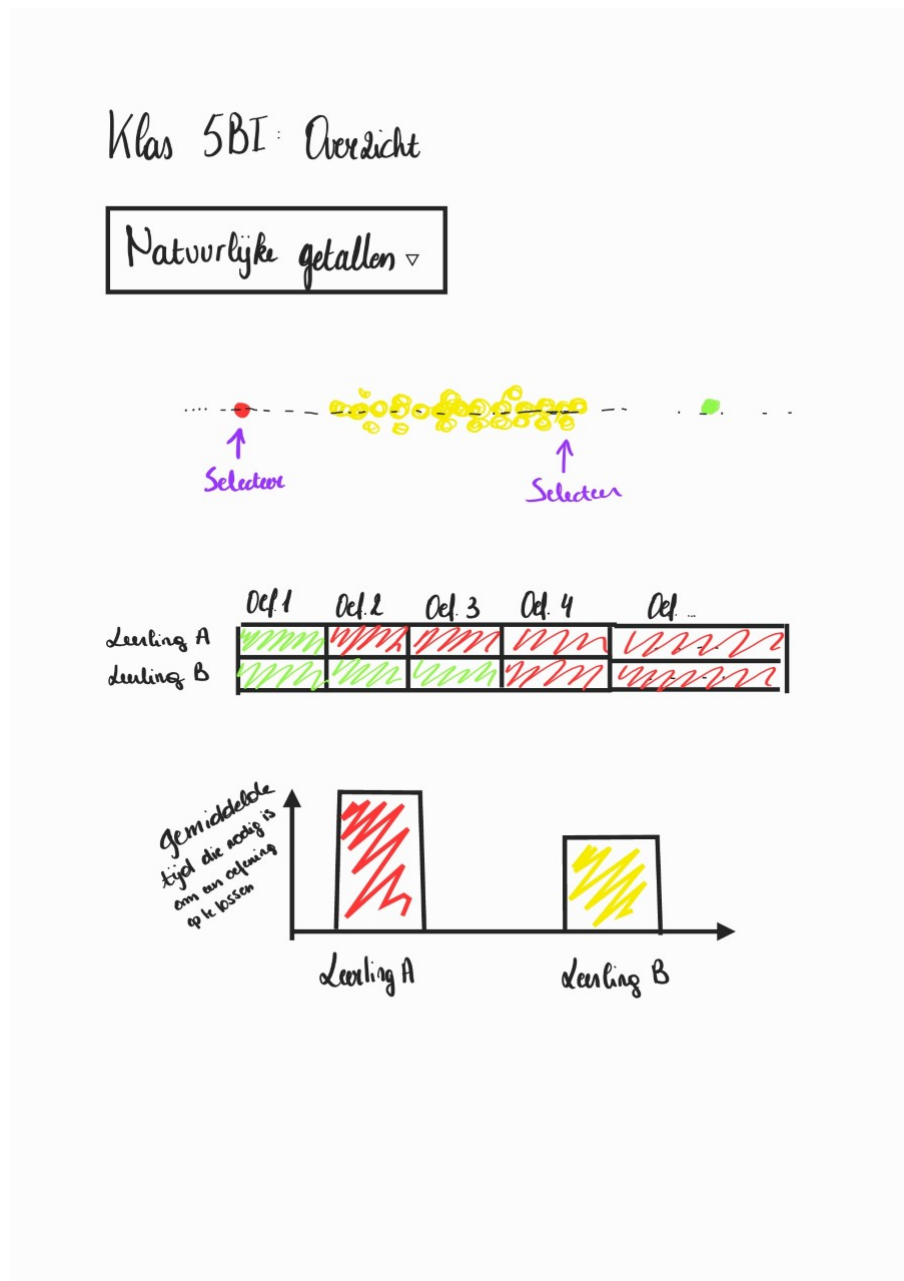 Klas 5BI: Overzicht
Natuurlijke getallen ▿
Selecteer
Selecteer
Oef. 1 Oef. 2 Oef. 3 Oef. 4 Oef. ...
Leerling A
Leerling B
gemiddelde
tijd die nodig is
om een oefening
op te lossen
Leerling A Leerling B